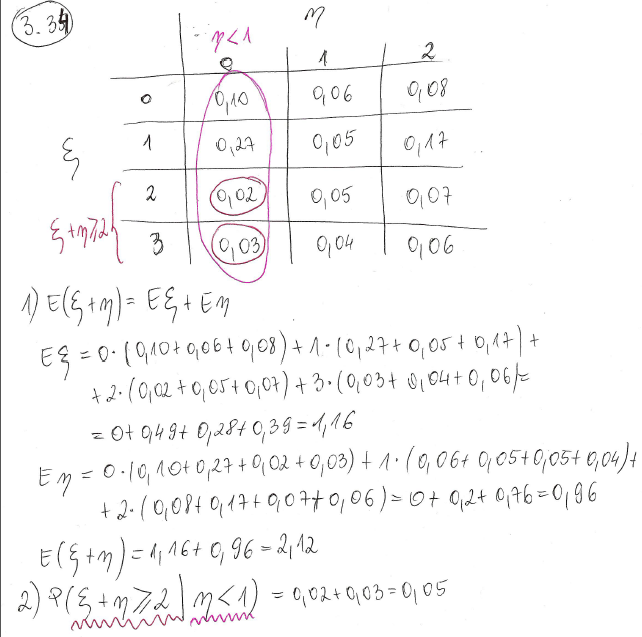 3.34
η
η<1
0 1 2
0 0,10 0,06 0,08
1 0,27 0,05 0,17
ξ
2 0,02 0,05 0,07
ξ+η⩾2
3 0,03 0,04 0,06
1) E(ξ+η) = Eξ + Eη
Eξ = 0·(0,10+0,06+0,08) + 1·(0,27+0,05+0,17) +
+ 2·(0,02+0,05+0,07) + 3·(0,03+0,04+0,06) =
= 0 + 0,49 + 0,28 + 0,39 = 1,16
Eη = 0·(0,10+0,27+0,02+0,03) + 1·(0,06+0,05+0,05+0,04) +
+ 2·(0,08+0,17+0,07+0,06) = 0 + 0,2 + 0,76 = 0,96
E(ξ+η) = 1,16 + 0,96 = 2,12
2) P(ξ+η⩾2 | η<1) = 0,02+0,03 = 0,05